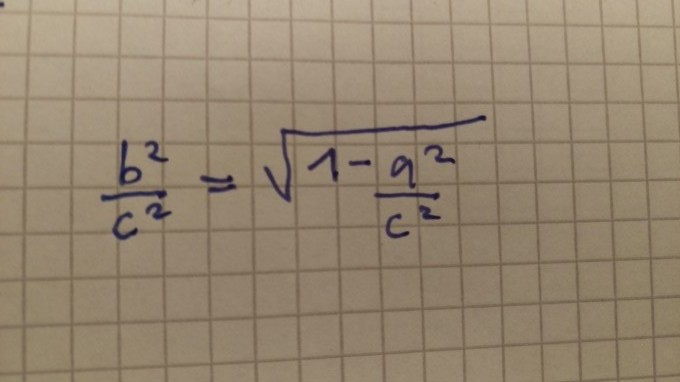 b²/c² = √(1 - a²/c²)